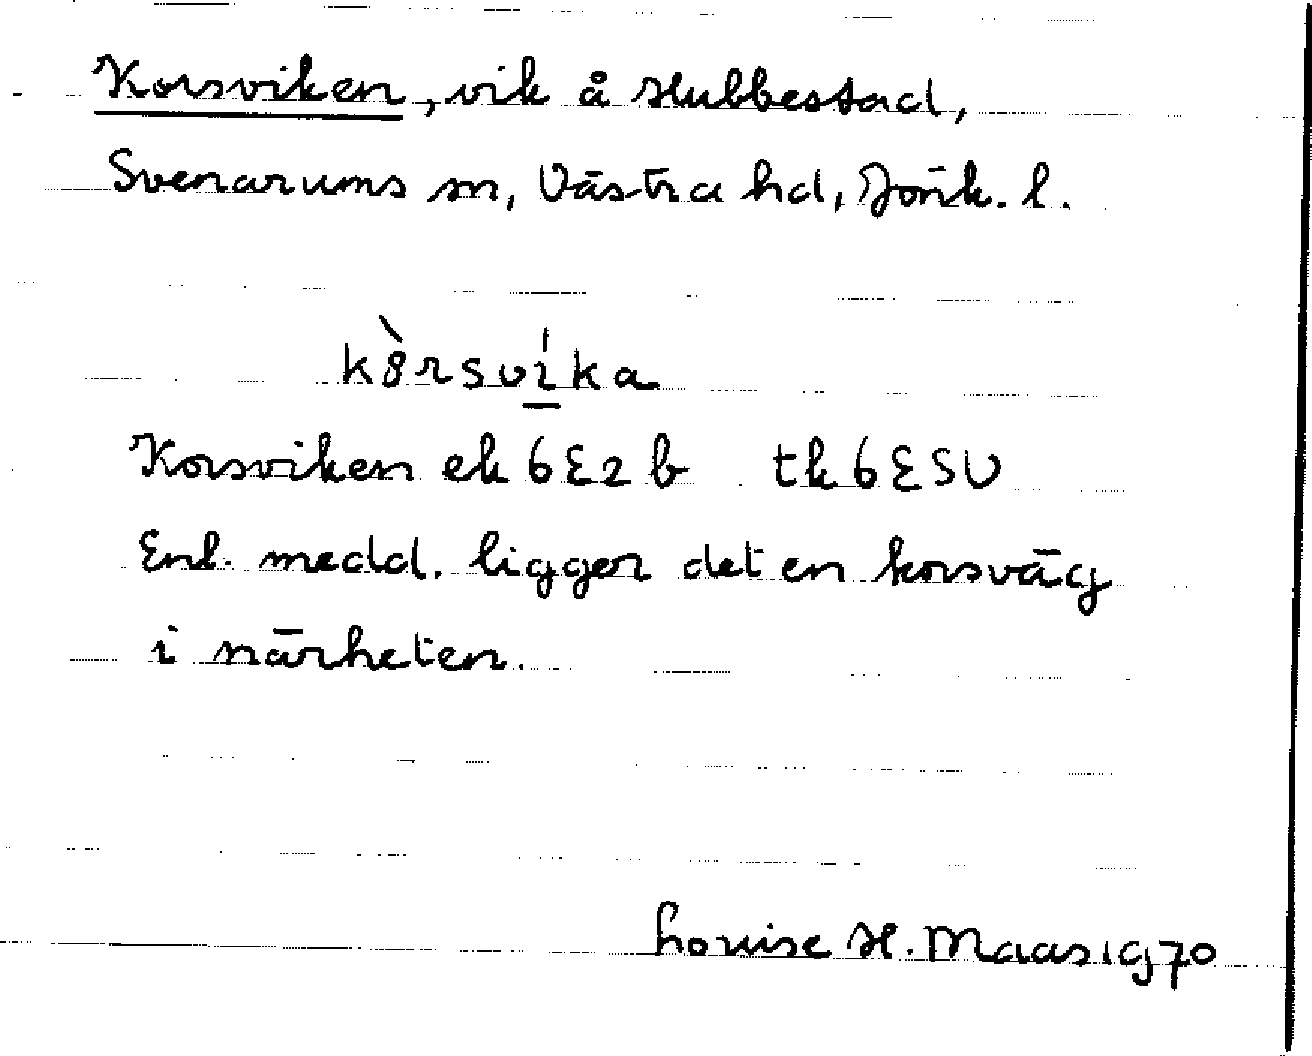 Korsviken, vik å Hubbestad,
Svenarums sn, Västra hd, Jönk. l.
kò̀rsvíka
Korsviken ek 6E2b tk 6ESV
Enl. medd. ligger det en korsväg
i närheten.
Louise H. Maas 1970